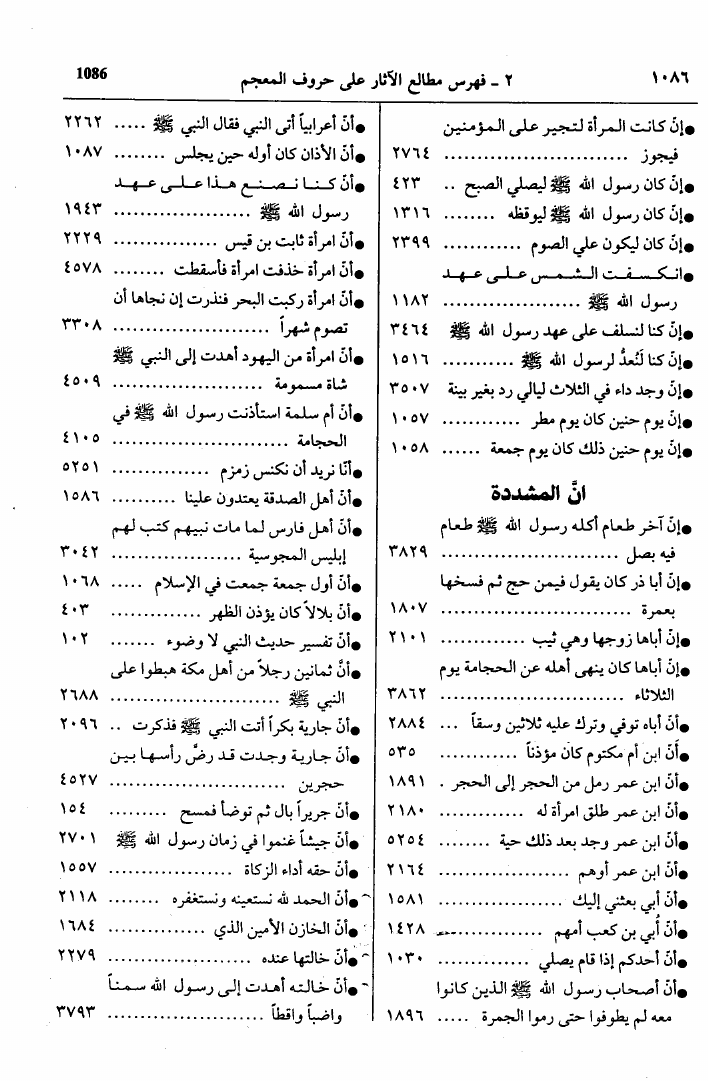 ١٠٨٦ ٢ ـ فهرس مطالع الآثار على حروف المعجم 1086
● إنّ كانت المرأة لتجير على المؤمنين
فيجوز ............................ ٢٧٦٤
● إنّ كان رسول الله ﷺ ليصلي الصبح .. ٤٢٣
● إنّ كان رسول الله ﷺ ليوقظه ........ ١٣١٦
● إنّ كان ليكون علي الصوم ............ ٢٣٩٩
● انـكـسـفـت الـشـمـس عـلـى عـهـد
رسول الله ﷺ ..................... ١١٨٢
● إنّ كنا لنسلف على عهد رسول الله ﷺ ٣٤٦٤
● إنّ كنا لَنُعدُّ لرسول الله ﷺ ........... ١٥١٦
● إنّ وجد داء في الثلاث ليالي رد بغير بينة ٣٥٠٧
● إنّ يوم حنين كان يوم مطر ............ ١٠٥٧
● إنّ يوم حنين ذلك كان يوم جمعة ...... ١٠٥٨
انَّ المشددة
● إنّ آخر طعام أكله رسول الله ﷺ طعام
فيه بصل ........................... ٣٨٢٩
● إنّ أبا ذر كان يقول فيمن حج ثم فسخها
بعمرة ............................. ١٨٠٧
● إنّ أباها زوجها وهي ثيب ............. ٢١٠١
● إنّ أباها كان ينهى أهله عن الحجامة يوم
الثلاثاء ............................ ٣٨٦٢
● أنّ أباه توفي وترك عليه ثلاثين وسقاً ... ٢٨٨٤
● أَنّ ابن أم مكتوم كان مؤذناً ............ ٥٣٥
● أنّ ابن عمر رمل من الحجر إلى الحجر . ١٨٩١
● أنّ ابن عمر طلق امرأة له ............. ٢١٨٠
● أنّ ابن عمر وجد بعد ذلك حية ........ ٥٢٥٤
● أنّ ابن عمر أوهم .................... ٢١٦٤
● أنّ أبي بعثني إليك ................... ١٥٨١
● أنّ أُبي بن كعب أمهم ................ ١٤٢٨
● أنّ أحدكم إذا قام يصلي .............. ١٠٣٠
● أنّ أصحاب رسول الله ﷺ الذين كانوا
معه لم يطوفوا حتى رموا الجمرة ..... ١٨٩٦
● أنّ أعرابياً أتى النبي فقال النبي ﷺ ..... ٢٢٦٢
● أنّ الأذان كان أوله حين يجلس ........ ١٠٨٧
● أنّ كـنـا نـصـنـع هـذا عـلـى عـهـد
رسول الله ﷺ ..................... ١٩٤٣
● أنّ امرأة ثابت بن قيس ................ ٢٢٢٩
● أنّ امرأة خذفت امرأة فأسقطت ........ ٤٥٧٨
● أنّ امرأة ركبت البحر فنذرت إن نجاها أن
تصوم شهراً ........................ ٣٣٠٨
● أنّ امرأة من اليهود أهدت إلى النبي ﷺ
شاة مسمومة ....................... ٤٥٠٩
● أنّ أم سلمة استأذنت رسول الله ﷺ في
الحجامة ........................... ٤١٠٥
● أنّا نريد أن نكنس زمزم ............... ٥٢٥١
● أنّ أهل الصدقة يعتدون علينا .......... ١٥٨٦
● أنّ أهل فارس لما مات نبيهم كتب لهم
إبليس المجوسية .................... ٣٠٤٢
● أنّ أول جمعة جمعت في الإسلام ..... ١٠٦٨
● أنّ بلالاً كان يؤذن الظهر .............. ٤٠٣
● أنّ تفسير حديث النبي لا وضوء ....... ١٠٢
● أنّ ثمانين رجلاً من أهل مكة هبطوا على
النبي ﷺ .......................... ٢٦٨٨
● أنّ جارية بكراً أتت النبي ﷺ فذكرت .. ٢٠٩٦
● أنّ جارية وجدت قد رضَّ رأسها بين
حجرين ........................... ٤٥٢٧
● أنّ جريراً بال ثم توضأ فمسح ......... ١٥٤
● أنّ جيشاً غنموا في زمان رسول الله ﷺ ٢٧٠١
● أنّ حقه أداء الزكاة ................... ١٥٥٧
● أنّ الحمد لله نستعينه ونستغفره ........ ٢١١٨
● أنّ الخازن الأمين الذي ............... ١٦٨٤
● أنّ خالتها عنده ...................... ٢٢٧٩
● أنّ خالته أهدت إلى رسول الله سمناً
واضباً واقطاً ........................ ٣٧٩٣